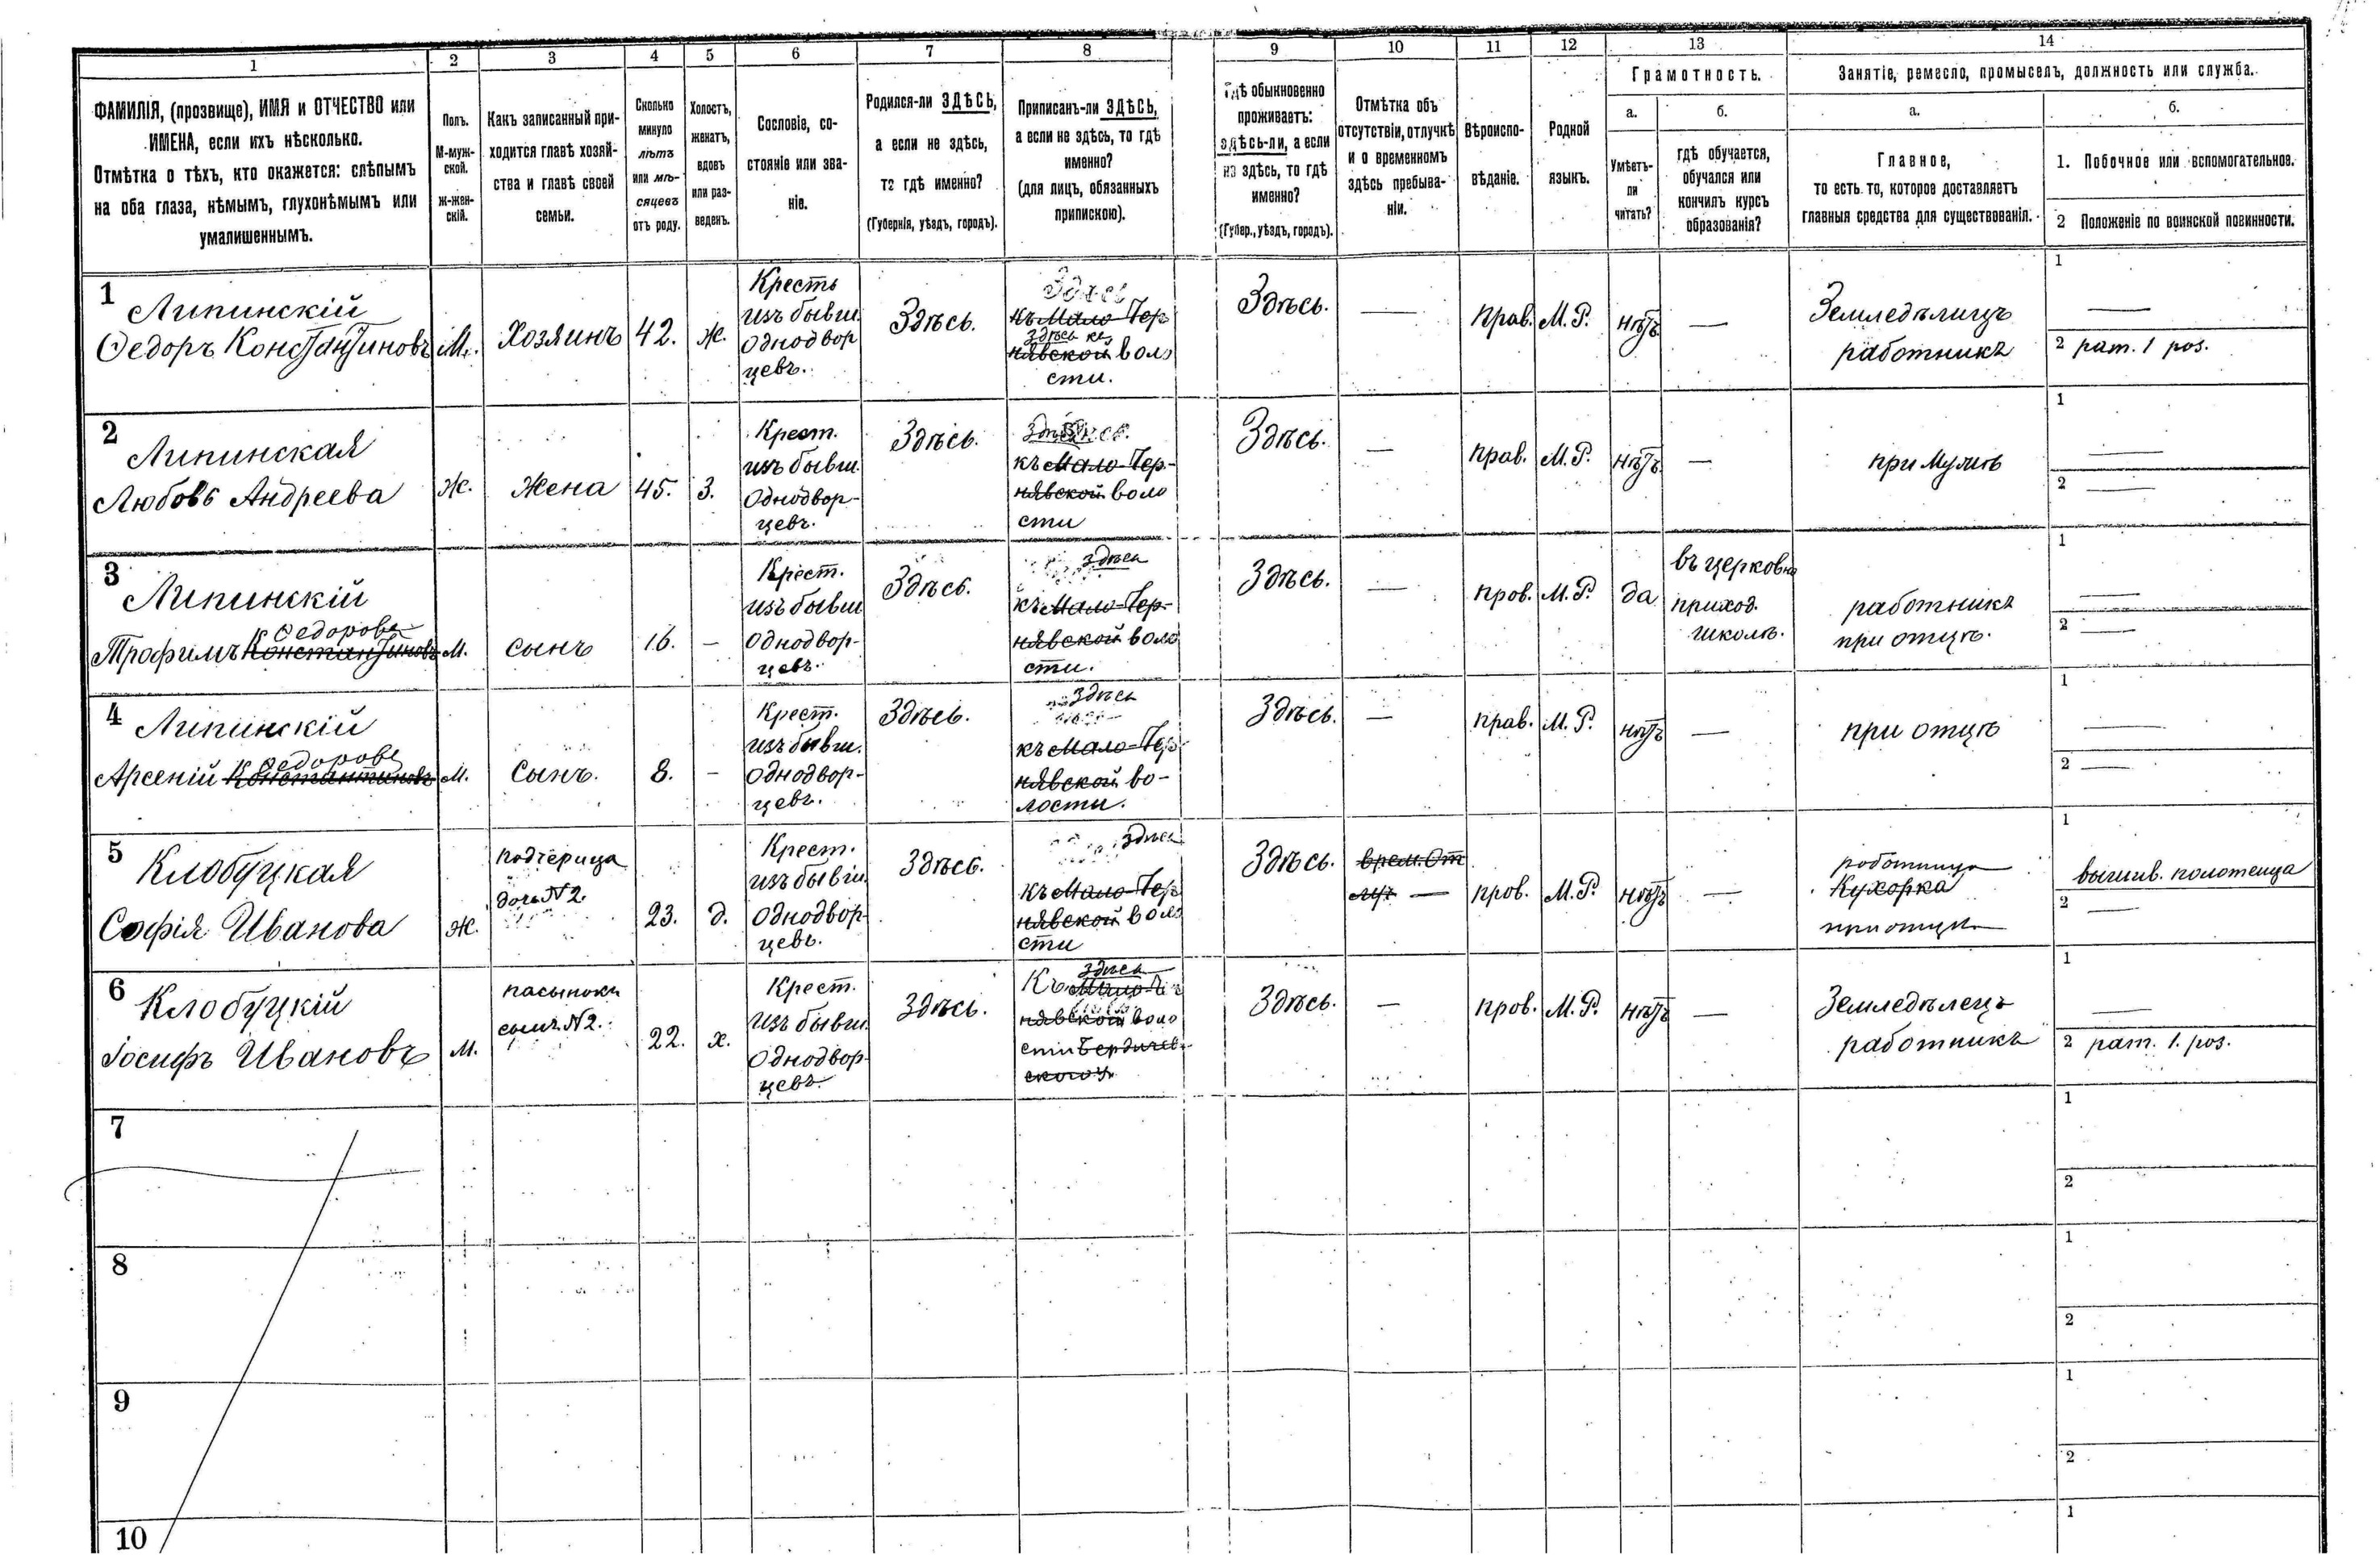 1
2
3
4
5
6
7
8
9
10
11
12
13
14
ФАМИЛІЯ, (прозвище), ИМЯ и ОТЧЕСТВО или
ИМЕНА, если ихъ нѣсколько.
Отмѣтка о тѣхъ, кто окажется: слѣпымъ
на оба глаза, нѣмымъ, глухонѣмымъ или
умалишеннымъ.
Полъ.
М-муж-
ской.
ж-жен-
скій.
Какъ записанный при-
ходится главѣ хозяй-
ства и главѣ своей
семьи.
Сколько
минуло
лѣтъ
или мѣ-
сяцевъ
отъ роду.
Холостъ,
женатъ,
вдовъ
или раз-
веденъ.
Сословіе, со-
стояніе или зва-
ніе.
Родился-ли ЗДѢСЬ,
а если не здѣсь,
то гдѣ именно?
(Губернія, уѣздъ, городъ).
Приписанъ-ли ЗДѢСЬ,
а если не здѣсь, то гдѣ
именно?
(для лицъ, обязанныхъ
припискою).
Гдѣ обыкновенно
проживаетъ:
здѣсь-ли, а если
не здѣсь, то гдѣ
именно?
(Губер., уѣздъ, городъ).
Отмѣтка объ
отсутствіи, отлучкѣ
и о временномъ
здѣсь пребыва-
ніи.
Вѣроиспо-
вѣданіе.
Родной
языкъ.
Грамотность.
а.
Умѣетъ-
ли
читать?
б.
гдѣ обучается,
обучался или
кончилъ курсъ
образованія?
Занятіе, ремесло, промыселъ, должность или служба.
а.
Главное,
то есть то, которое доставляетъ
главныя средства для существованія.
б.
1. Побочное или вспомогательное.
2 Положеніе по воинской повинности.
1
Липинскій
Ѳедоръ Константиновъ
М.
Хозяинъ
42.
ж.
Кресть
изъ бывш.
Однодвор
цевъ.
Здѣсь.
Здѣсь
къ Мало-Чер
нявской воло
сти.
Здѣсь.
—
прав.
М. Р.
нѣтъ
—
Земледѣлицъ
работникъ
1
—
2 рат. 1 роз.
2
Липинская
Любовь Андреева
Ж.
Жена
45.
З.
Крест.
изъ бывш.
Однодвор-
цевъ.
Здѣсь.
Здѣсь.
къ Мало-Чер-
нявской воло
сти
Здѣсь.
—
прав.
М. Р.
нѣтъ
—
при мужѣ
1
—
2 —
3
Липинскій
Ѳедоровъ
Трофимъ Константиновъ
М.
сынъ
16.
—
Крест.
изъ бывш
Однодвор-
цевъ.
Здѣсь.
здѣсь
къ Мало-Чер-
нявской воло
сти.
Здѣсь.
—
прав.
М. Р.
да
въ церковно
приход.
школѣ.
работникъ
при отцѣ.
1
—
2 —
4
Липинскій
Ѳедоровъ
Арсеній Константиновъ
М.
Сынъ.
8.
—
Крест.
изъ бывш.
Однодвор-
цевъ.
Здѣсь.
здѣсь
къ Мало-Чер
нявской во-
лости.
Здѣсь.
—
прав.
М. Р.
нѣтъ
—
при отцѣ
1
—
2 —
5
Клобуцкая
Софія Иванова
Ж.
падчерица
дочь №2.
23.
д.
Крест.
изъ бывш.
Однодвор
цевъ.
Здѣсь.
здѣсь
къ Мало-Чер
нявской воло
сти
Здѣсь.
врем. От
луч —
прав.
М. Р.
нѣтъ
—
работница
Кухорка
при отцѣ
1
вышив. полотенца
2 —
6
Клобуцкій
Іосифъ Ивановъ
М.
пасынокъ
сынъ №2.
22.
х.
Крест.
Изъ бывш.
Однодвор-
цевъ
Здѣсь.
здѣсь
Къ Мало-Чер
нявской воло
сти Бердичев-
скаго у.
Здѣсь.
—
прав.
М. Р.
нѣтъ
—
Земледѣлецъ
работникъ
1
—
2 рат. 1. роз.
7
1
2
8
1
2
9
1
2
10
1